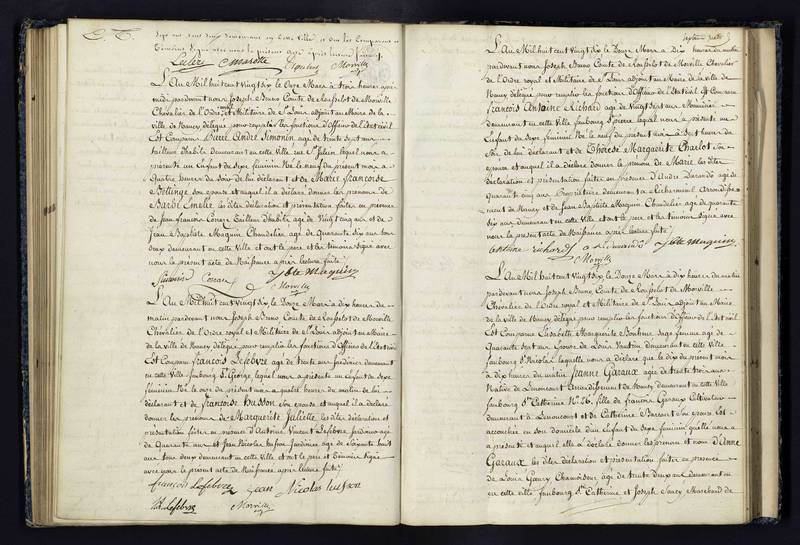 Sept ans tous deux demeurant en cette ville et ont les Comparans et
Témoins signé avec nous le présent acte après lecture faite
Leclerc Marotte Morville
L'An Mil huit cent vingt six le Onze Mars à trois heures après
midi pardevant nous Joseph Bruno Comte de Rousselot de Morville
Chevalier de l'Ordre et Militaire de St Louis adjoint au Maire de la
ville de Nancy délégué pour remplir les fonctions d'Officier de l'Etat civil
Est Comparu Pierre André Simonin agé de trente sept ans
tailleur d'habits demeurant en cette Ville rue St Julien lequel nous a
présenté un Enfant du Sexe féminin Né le neuf du présent mois à
quatre heures du Soir de lui déclarant et de Marie françoise
Bottinge son épouse et auquel il a déclaré donner les prénoms de
Barbe Emélie les dites déclaration et présentation faites en présence
de Jean françois Tailleur d'habits agé de Vingt cinq ans et de
Jean Baptiste Maquin Chandelier agé de Quarante Six ans tous
deux demeurant en cette ville et ont le père et les témoins signé avec
nous le présent acte de Naissance après lecture faite
Simonin Jbte Maquin
Morville
L'An Mil huit cent vingt six le Douze Mars à dix heures du
matin pardevant nous Joseph Bruno Comte de Rousselot de Morville
Chevalier de l'Ordre royal et Militaire de St Louis adjoint au Maire
de la ville de Nancy délégué pour remplir les fonctions d'Officier de l'Etat civil
Est Comparu françois Lefebvre agé de trente ans jardinier demeurant
en cette Ville faubourg St George lequel nous a présenté un Enfant du Sexe
féminin Né le onze du présent mois à quatre heures du matin de lui
déclarant et de françoise Husson son épouse et auquel il a déclaré
donner les prénoms de Marguerite Juliette les dites déclaration et
présentation faites en présence d'Antoine Vincent Lefebvre Jardinier agé
de Quarante ans et Jean Nicolas husson Jardinier agé de Soixante huit
ans tous deux demeurant en cette Ville et ont le père et témoins signé
avec nous le présent acte de Naissance après lecture faite
françois Lefebvre Jean Nicolas husson
Lefebvre Morville
L'An Mil huit cent vingt six le Douze Mars à Dix heures du matin
pardevant nous Joseph Bruno Comte de Rousselot de Morville Chevalier
de l'Ordre royal et Militaire de St Louis adjoint au Maire de la ville de
Nancy délégué pour remplir les fonctions d'Officier de l'Etat civil Est Comparu
françois Antoine Richard agé de Vingt Sept ans Menuisier
demeurant en cette Ville faubourg St pierre lequel nous a présenté un
Enfant du Sexe féminin Né le neuf du présent mois à Sept heures du
Soir de lui déclarant et de Thérèse Marguerite Charlot son
épouse et auquel il a déclaré donner le prénom de Marie les dites
déclaration et présentation faites en présence d'André Durando agé de
Quarante cinq ans Propriétaire demeurant à Richarmenil Arrondisse
ment de Nancy et de Jean Baptiste Maquin Chandelier agé de quarante
Six ans demeurant en cette Ville et ont le père et les témoins signé avec
nous le présent acte de Naissance après lecture faite
antoine richard Jbte Maquin
Morville
L'An Mil huit cent vingt six le Douze Mars à dix heures du matin
pardevant nous Joseph Bruno Comte de Rousselot de Morville
Chevalier de l'Ordre royal et Militaire de St Louis adjoint au Maire
de la ville de Nancy délégué pour remplir les fonctions d'Officier de l'Etat civil
Est Comparue Elisabeth Marguerite Bonhme Sage femme agé de
Quarante Sept ans Epouse de Louis demeurant en cette Ville
faubourg St Nicolas laquelle nous a déclaré que le dix du présent mois
à dix heures du matin Jeanne Garaux agée de trente trois ans
Native de Lenoncourt Arrondissement de Nancy demeurant en cette Ville
faubourg Ste Catherine No 26 fille de françois Garaux Cultivateur
demeurant à Lenoncourt et de Catherine son épouse Est
accouchée en son domicile d'un Enfant du Sexe féminin qu'elle nous
a présenté et auquel elle a déclaré donner les prénoms et nom d'Anne
Garaux les dites déclaration et présentation faites en présence
de Louis agé de trente deux ans demeurant en
en cette ville faubourg Ste Catherine et Joseph Marchand de